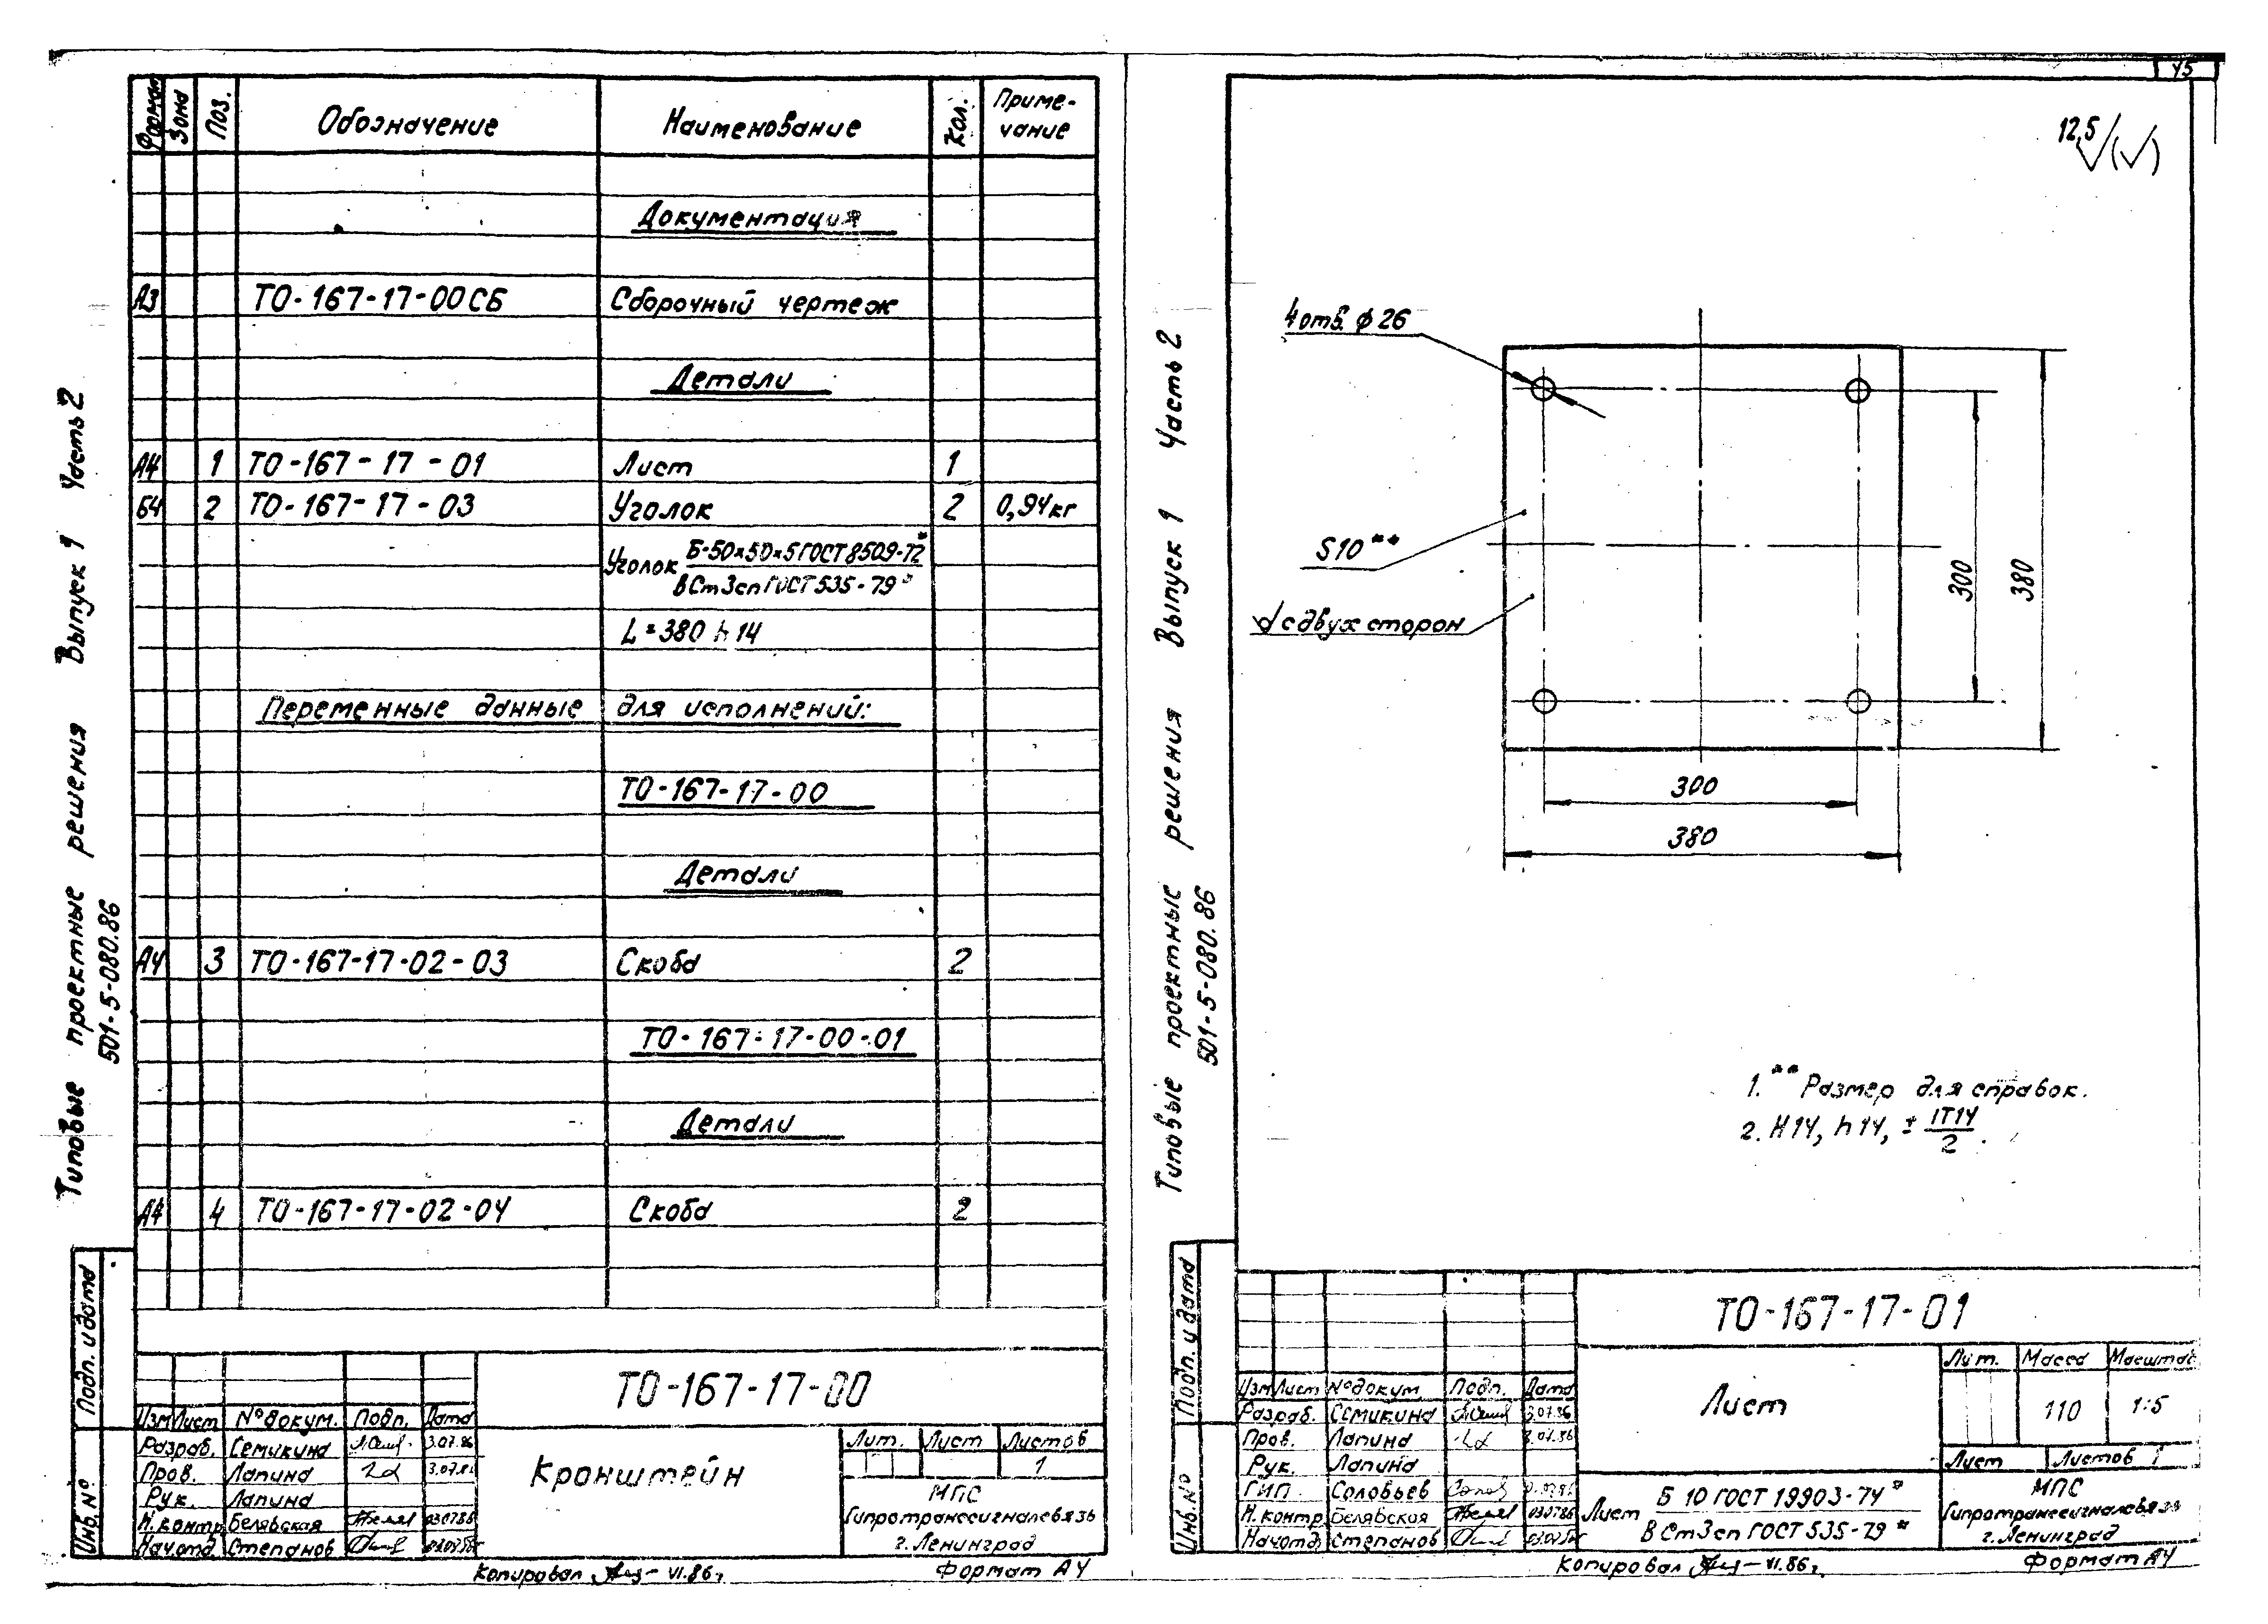 Формат Зона Поз. Обозначение Наименование Кол. Приме-
чание
Документация
А3 ТО-167-17-00СБ Сборочный чертеж
Детали
А4 1 ТО-167-17-01 Лист 1
Б4 2 ТО-167-17-03 Уголок 2 0,94кг
Уголок Б-50×50×5 ГОСТ 8509-72*
ВСт3сп ГОСТ 535-79*
L=380 h14
Переменные данные для исполнений:
ТО-167-17-00
Детали
А4 3 ТО-167-17-02-03 Скоба 2
ТО-167-17-00-01
Детали
А4 4 ТО-167-17-02-04 Скоба 2
Типовые проектные решения Выпуск 1 Часть 2
501-5-080.86
Подп. и дата
Инв. №
ТО-167-17-00
Изм Лист № докум. Подп. Дата
Разраб. Семикина 3.07.86
Пров. Лапина
Рук. Лапина
Н.контр. Белявская 030786
Нач.отд. Степанов
Кронштейн
Лит. Лист Листов
1
МПС
Гипротранссигналсвязь
г. Ленинград
Копировал VI.86г.
Формат А4
45
12,5 (√)
4 отв. φ26
S10**
с двух сторон
300
380
300
380
1. ** Размер для справок.
2. H14, h14, ± IT14
2 .
Типовые проектные решения Выпуск 1 Часть 2
501-5-080.86
Подп. и дата
Инв. №
ТО-167-17-01
Изм Лист № докум. Подп. Дата
Разраб. Семикина 3.07.86
Пров. Лапина 3.07.86
Рук. Лапина
ГИП Соловьев
Н.контр. Белявская 030786
Нач.отд. Степанов
Лист
Лит. Масса Масштаб
110 1:5
Лист Листов 1
Лист Б 10 ГОСТ 19903-74*
ВСт3сп ГОСТ 535-79*
МПС
Гипротранссигналсвязь
г. Ленинград
Копировал VI.86г.
Формат А4